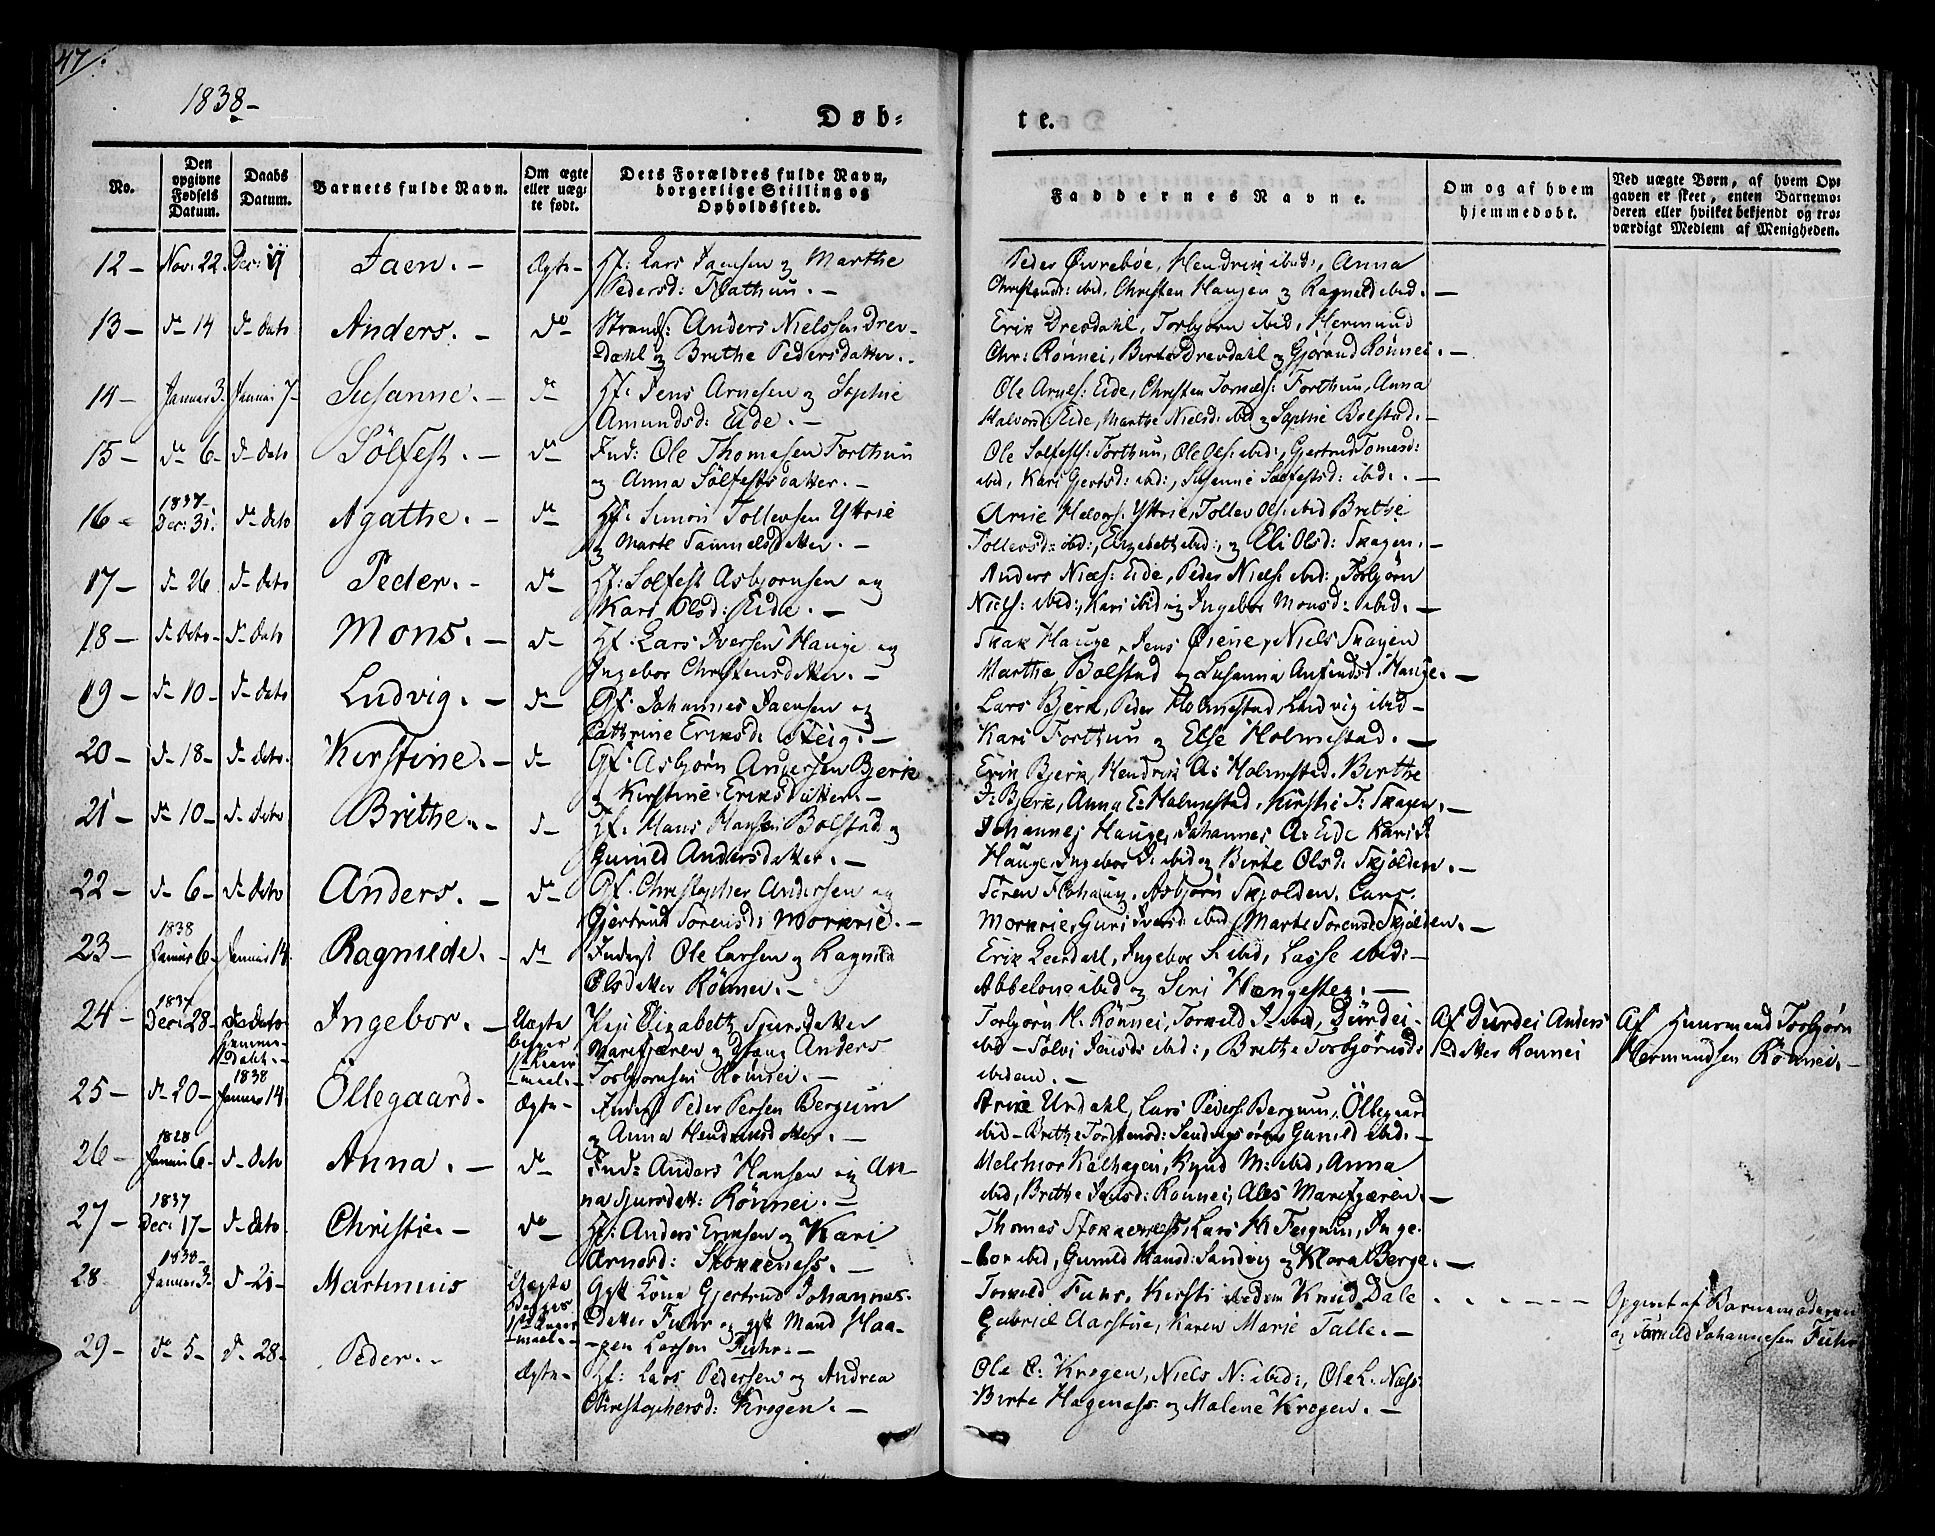 47.
1838 –
Døb- te.
No.
Den opgivne Fødsels Datum.
Daabs Datum.
Barnets fulde Navn.
Om ægte eller uægte født.
Dets Forældres fulde Navn, borgerlige Stilling og Opholdssted.
Faddernes Navne.
Om og af hvem hjemmedøbt.
Ved uægte Børn, af hvem Opgaven er skeet, enten Barnemoderen eller hvilket bekjendt og troværdigt Medlem af Menigheden.
12 – Nov: 22. Dec: Jaen. – Ægte – Gf: Lars Jaensen og Marthe
Pedersd: –
Peder Øvrebøe, Hendrik ibid:, Anna
ibid, Christen Haugen og Ragneld ibid. –
13 – d– 14 d– dato Anders. – do Strands: Anders Nielssen Drev-
dahl og Brithe Pedersdatter. –
Erik Drevdahl, Torbjørn ibid, Hermund
Chr: Rönnei, Berte Drevdahl og Gjörand Rönnei. –
14 – Januar 3. Januar 7 – Susanne. – d– Hf: Jens Arnesen og Sophie
Amundsd: Eide. –
Ole Arnes: Eide, Christen Forthun, Anna
Halvors: Eide, Marthe Nielsd: ibid og Sophie Bolstad. –
15 – d– 6 – d– dato Sölfest. – d– Ind: Ole Thomasen Forthun
og Anna Sölfestsdatter. –
Ole Solfests: Forthun, Ole Ols: ibid:, Gjertrud Tomasd:
ibid, Kari Gjertsd: ibid:, Susanne Solfestsd: ibid:. –
16 – 1837 – Dec: 31. d– dato Agathe. – d– Hf: Simon Tollevsen Yttrie
og Marte Samuelsdatter. –
Arne Halvors: Yttrie, Tollev Ols: ibid Brithe
Tollevsd: ibid:, Elizabeth ibid:, og Eli Olsd: Skagen. –
17 – d– 26 d– dato Peder. – do Hf: Solfest Asbjornsen og
Kari Olsd: Eide. –
Anders Niels: Eide, Peder Niels: ibid:, Torbjörn
Niels: ibid:, Kari ibid og Ingebor Monsd: ibid. –
18 – d– dato – d– dato Mons. – d– Hf: Lars Iversen Hauge og
Ingebor Christensdatter. –
Hauge, Jens Øiene, Niels Skagen
Marthe Bolstad og Susanna Hauge. –
19 – d– 10 – d– dato Ludvig. – d– Gf: Johannes Jaensen og
Cathrine Eriksd: Steig. –
Lars Bjerk, Peder Holmestad, Ludvig ibid –
Kari Forthun og Else Holmestad. –
20 – d– 18 – d– dato. Kirstine. – d– Gf: Asbjørn Andersen Bjerk
og Kirstine Eriksdatter. –
Erik Bjerk, Hendrik A: Holmestad, Birthe
J: Bjerk, Anna E: Holmestad, Kirsti T: Skagen. –
21 – d– 10 – d– dato Brithe. – d– Hf: Hans Hansen Bolstad og
Gunild Andersdatter. –
Johannes Hauge, Johannes A: Eide Kari J:
Hauge, Ingebor J: ibid og Berte Olsd: Skjolden. –
22 – d– 6 – d– dato Anders. – do Gf: Christopher Andersen og
Gjertrud Sorensd: Morkrie. –
Sören Flohaug, Asbjörn Skjolden, Lars
Morkrie, Guri ibid, Marte Sorensd: Skjolden. –
23 – 1838 Januar 6 – Januar 14. Ragnilde. – d– Inderst Ole Larsen og Ragnild
Olsdatter Rönnei. –
Erik Leerdahl, Ingebor S: ibid, Lasse ibid: –
Abbelone ibid og Seri Hængesten. –
24 – 1837 Dec: 28 – d– dato hjemme-
Døbt. – Ingebor. – Uægte
begges
1ste Leier-
maal. – Pige Elizabeth Sjursdatter
Marifjæren og Ung: Anders
Torbjornsen Rönnei. –
Torbjörn H: Rönnei, Torvild J: ibid, Dürdei
ibid – Sölvi Jensd: ibid:, Brithe Torbjörnsd:
ibidem. –
Af Dürdei Anders-
datter Rönnei
Af Huusmand Torbjørn
Hermundsen Rönnei. –
25 – d– 20 – 1838 Januar 14. Öllegaard. – Ægte – Inderst Peder Persen Bergum
og Anna Hendriksdatter. –
Arne Urdahl, Lars Peders: Bergum, Öllegaard
ibid – Brithe Torstensd: Gunild ibid. –
26 – 1838 Januar 6 – d– dato Anna. – d– Ind: Anders Hansen og An-
na Sjursdatt: Rönnei. –
Melchior Kalhagen, Knud M: ibid, Anna
ibid, Brithe Jensd: Rönnei, Ales Marifjæren. –
27 – 1837 Dec: 17 – d– dato. Christie. – do Hf: Anders Eriksen og Kari
Arnesd: Stokkenæss. –
Thomas Stokkenæss, Lars H: Fergum, Inge-
bor ibid, Gunild Hansd: Sandvig og Klora Berge. –
28 1838 – Januar 3 – d– 21 – Martinus Uægte
Begges
1ste Leier-
maal. – Gift Kone Gjertrud Johannes-
datter Fuhr og gift Mand Haa-
gen Larsen Fuhr. –
Torvild Fuhr, Kirsti ibidem Knud Dale
Gabriel Aarstue, Karen Marie Talle. –
Opgivet af Barnemoderen
og Torvild Johannesen Fuhr
29 – d– 5 – d– 28. – Peder. – Ægte – Hf: Lars Pedersen og Andrea
Christophersd: Kragen. –
Ole C: Kragen, Niels N: ibid:, Ole L: Næss
Berte Hagenæss og Malene Kragen. –